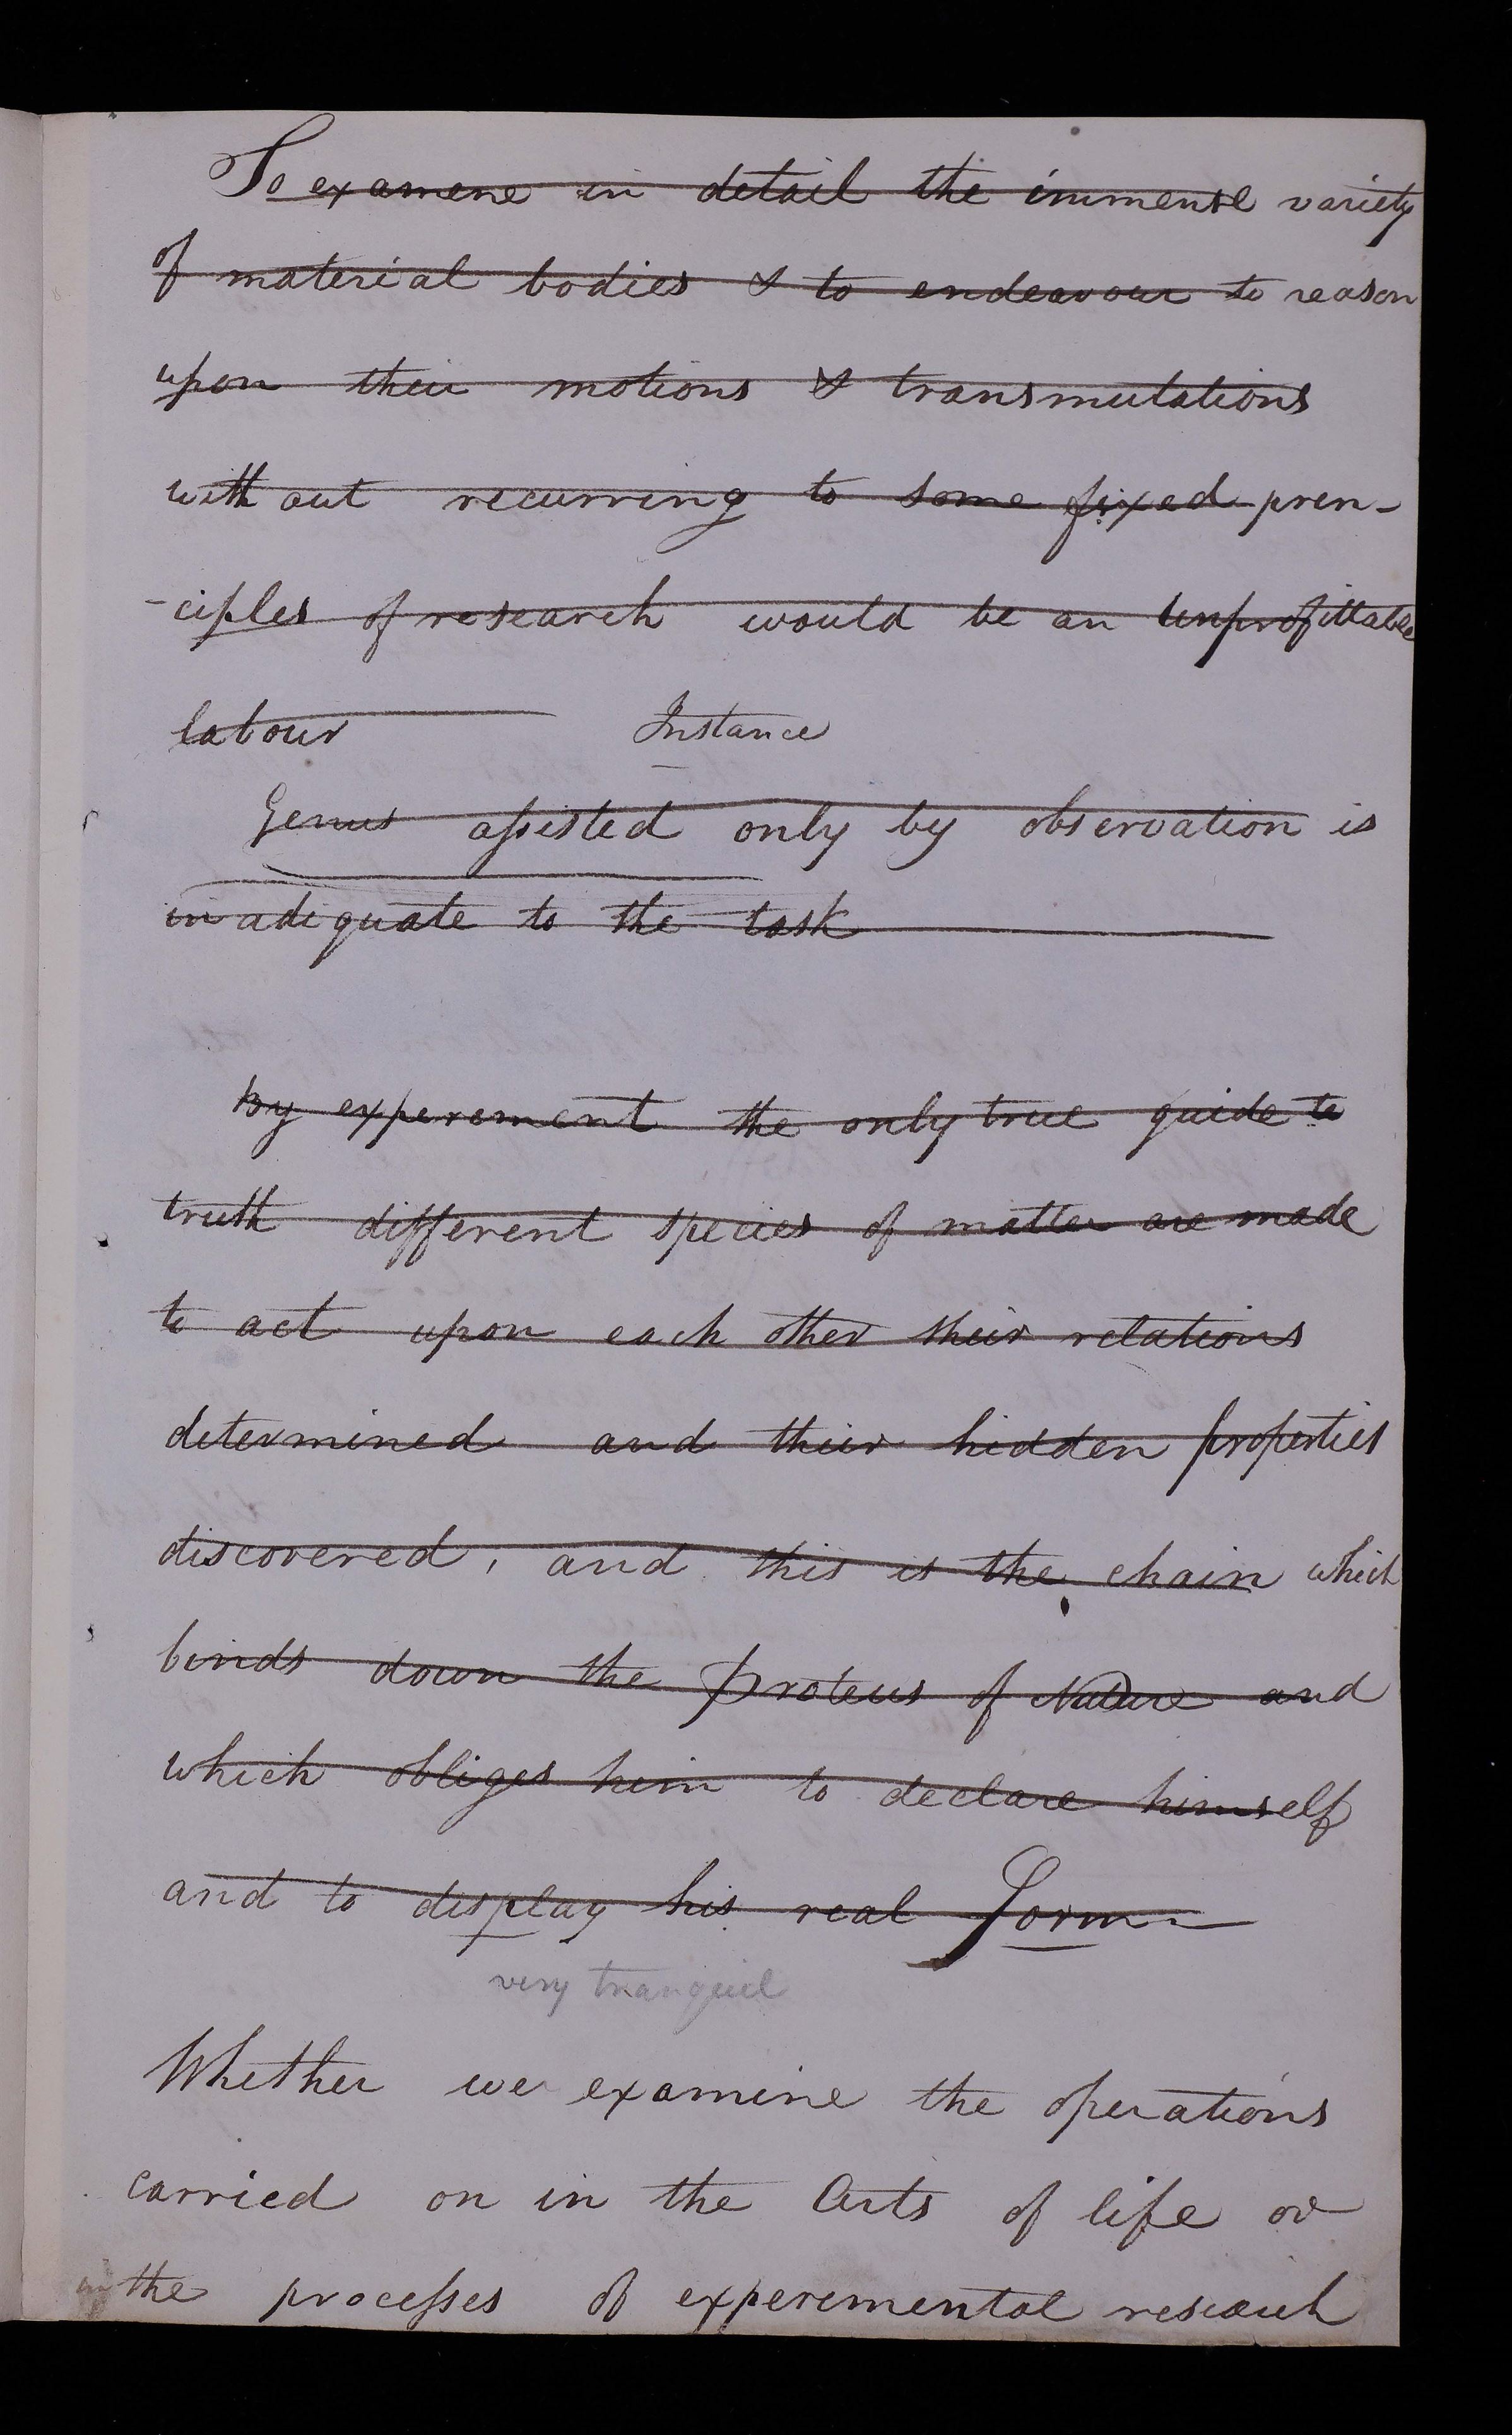 To examene in detail the immense variety
of material bodies & to endeavour to reason
upon their motions & transmutations
with out recurring to some fixed pren-
-ciples of research would be an unprofittable
labour Instance
Genus assisted only by observation is
inadequate to the task
By experement the only true guide to
truth different species of matter are made
to act upon each other their relations
determined and their hidden properties
discovered, and this is the chain which
binds down the Proteus of Nature and
which obliges him to declare himself
and to display his real Form
very tranquil
Whether we examine the operations
carried on in the Arts of life or
in the processes of experemental research